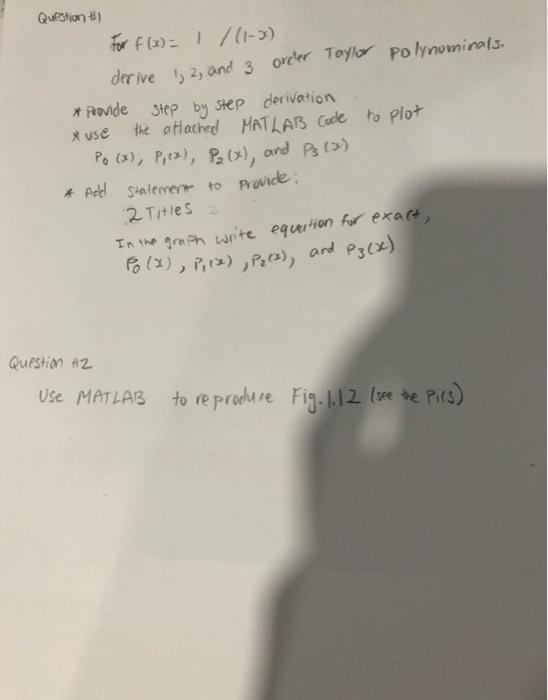 Question #1
For f(x) = 1 / (1-x)
derive 1, 2, and 3 order Taylor polynominals.
* Provide step by step derivation
* use the attached MATLAB code to plot
P0 (x), P1(x), P2(x), and P3(x)
* Add statement to provide:
2 Titles =
In the graph write equation for exact,
P0(x), P1(x), P2(x), and P3(x)
Question #2
Use MATLAB to reproduce Fig. 1.12 (see the Pics)